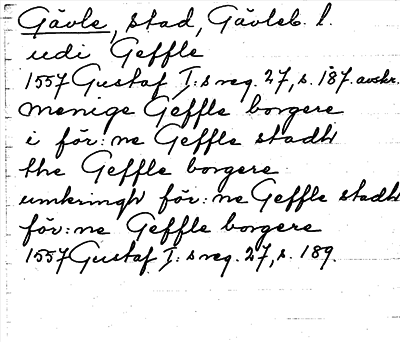 Gävle, stad, Gävleb. l.
udi Geffle
1557 Gustaf I:s reg. 27, s. 187. avskr.
menige Geffle borgere
i för:ne Geffle stadh
the Geffle borgere
umkringh för:ne Geffle stadh
för:ne Geffle borgere
1557 Gustaf I:s reg. 27, s. 189.